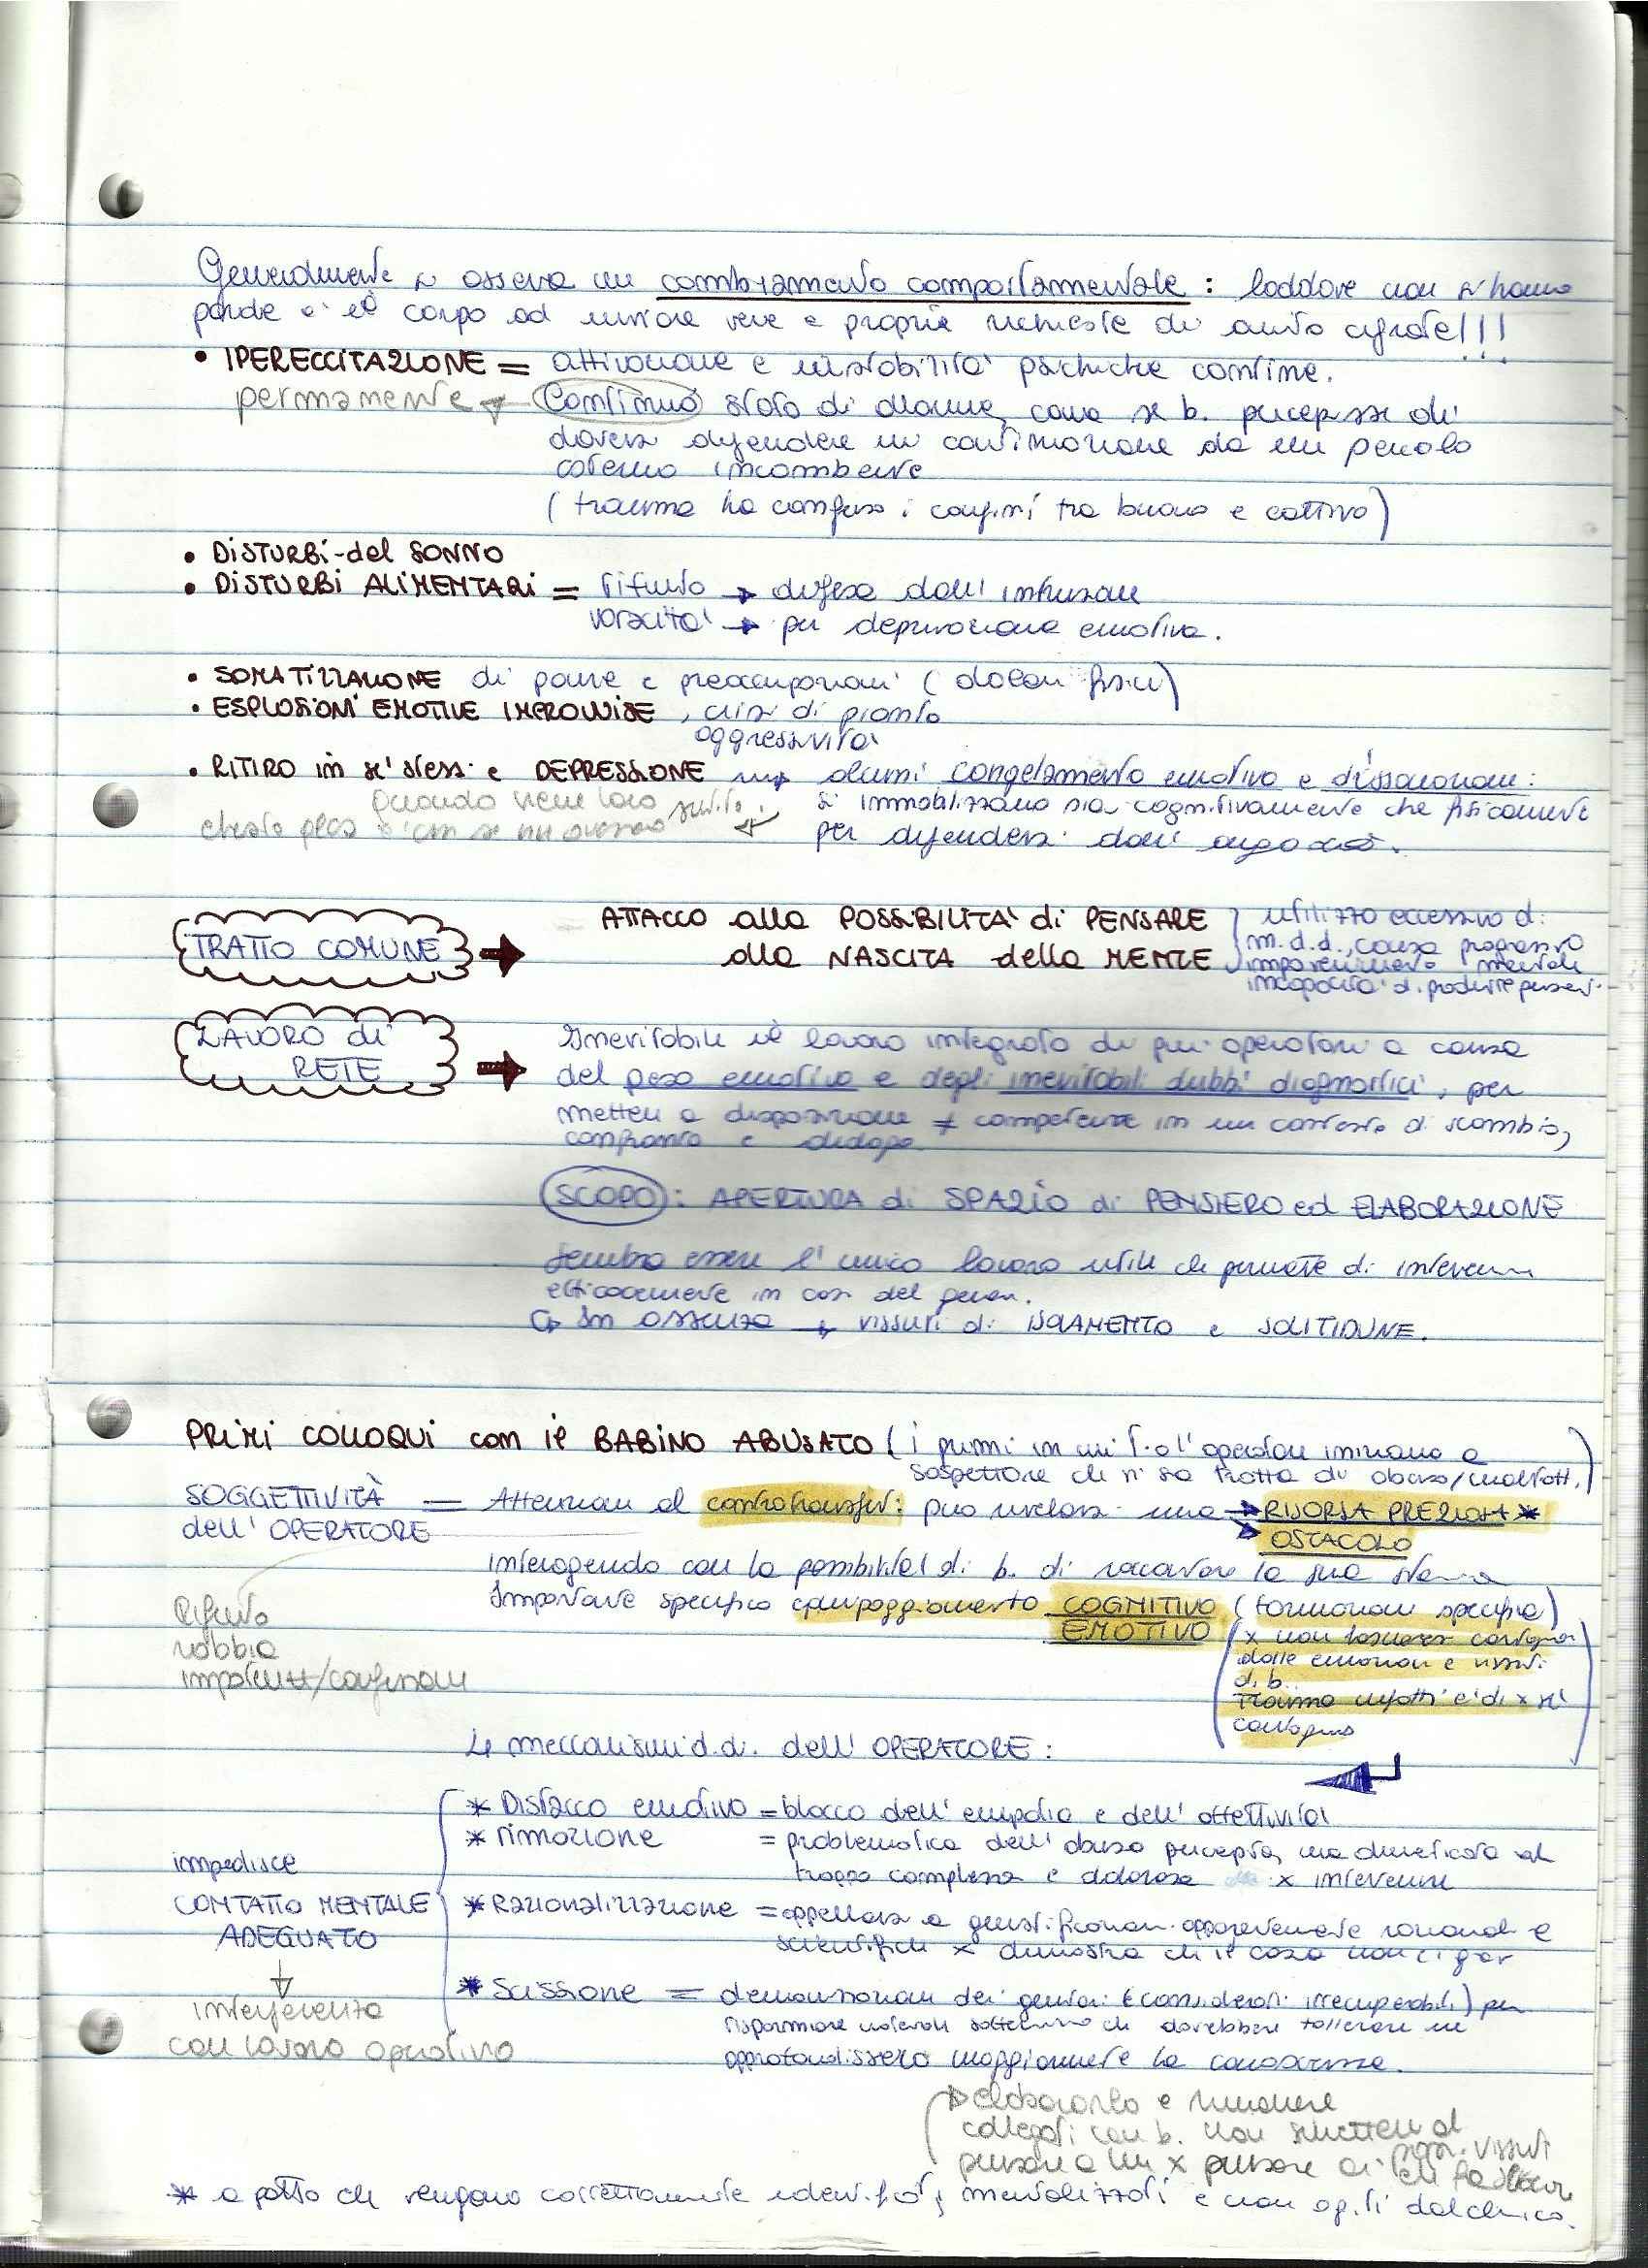 Generalmente si osserva un cambiamento comportamentale : laddove non si hanno
parole è il corpo ad inviare vere e proprie richieste di aiuto cifrate!!!
• IPERECCITAZIONE = attivazione e instabilità psichiche continue.
permanente Continuo stato di allarme, come se b. percepisse di
doversi difendere in continuazione da un pericolo
esterno incombente
(trauma ha confuso i confini tra buono e cattivo)
• DISTURBI del SONNO
• DISTURBI ALIMENTARI = rifiuto → difesa dall'intrusione
voracità → per deprivazione emotiva.
• SOMATIZZAZIONE di paure e preoccupazioni (dolori fisici)
• ESPLOSIONI EMOTIVE IMPROVVISE, crisi di pianto
aggressività
• RITIRO in se' stessi e DEPRESSIONE → alcuni congelamento emotivo e dissociazione:
Quando viene loro
si immobilizzano sia cognitivamente che fisicamente
per difendersi dall'angoscia.
TRATTO COMUNE → ATTACCO alla POSSIBILITA' di PENSARE
alla NASCITA della MENTE
utilizzo eccessivo di
m.d.d., causa progressivo
impoverimento mentale
incapacità di produrre pensieri
LAVORO di
RETE → Inevitabile il lavoro integrato di più operatori a causa
del peso emotivo e degli inevitabili dubbi diagnostici, per
mettere a disposizione ≠ competenze in un contesto di scambio,
confronto e dialogo.
SCOPO: APERTURA di SPAZIO di PENSIERO ed ELABORAZIONE
Sembra essere l'unico lavoro utile che permette di intervenire
efficacemente in casi del genere.
↳ In assenza → vissuti di ISOLAMENTO e SOLITIDUNE.
PRIMI COLLOQUI con il BABINO ABUSATO (i primi in cui l'operatore iniziano a
sospettare che si sia tratta di abuso/maltratt.)
SOGGETTIVITÀ
dell'OPERATORE = Attenzione al controtransfert: può rivelarsi una → RISORSA PREZIOSA *
→ OSTACOLO
interagendo con la possibilità di b. di raccontare la sua storia
Importante specifico equipaggiamento COGNITIVO (formazione specifica)
EMOTIVO (x non lasciarsi contagiare
dalle emozioni e vissuti
di b.
Trauma infatti è di x sé
contagioso
Rifiuto
rabbia
impotenza/confusione
↳ meccanismi d.d. dell'OPERATORE :
* Distacco emotivo = blocco dell'empatia e dell'affettività
* rimozione = problematica dell'abuso percepita, ma dimenticata xk
troppo complessa e dolorosa x intervenire
* Razionalizzazione = appellarsi a giustificazioni apparentemente razionali e
scientifiche x dimostrare che il caso non ci
* Scissione = demonizzazione dei genitori (considerati irrecuperabili) per
risparmiare notevoli sofferenze che dovrebbero tollerare se
approfondissero maggiormente la conoscenza.
impedisce
CONTATTO MENTALE
ADEGUATO
↓
interferenza
con lavoro operativo
elaborarlo e rimanere
collegati con b. non smettere di
pensare a lui x
* a patto che vengano correttamente identificati, mentalizzati e non agiti